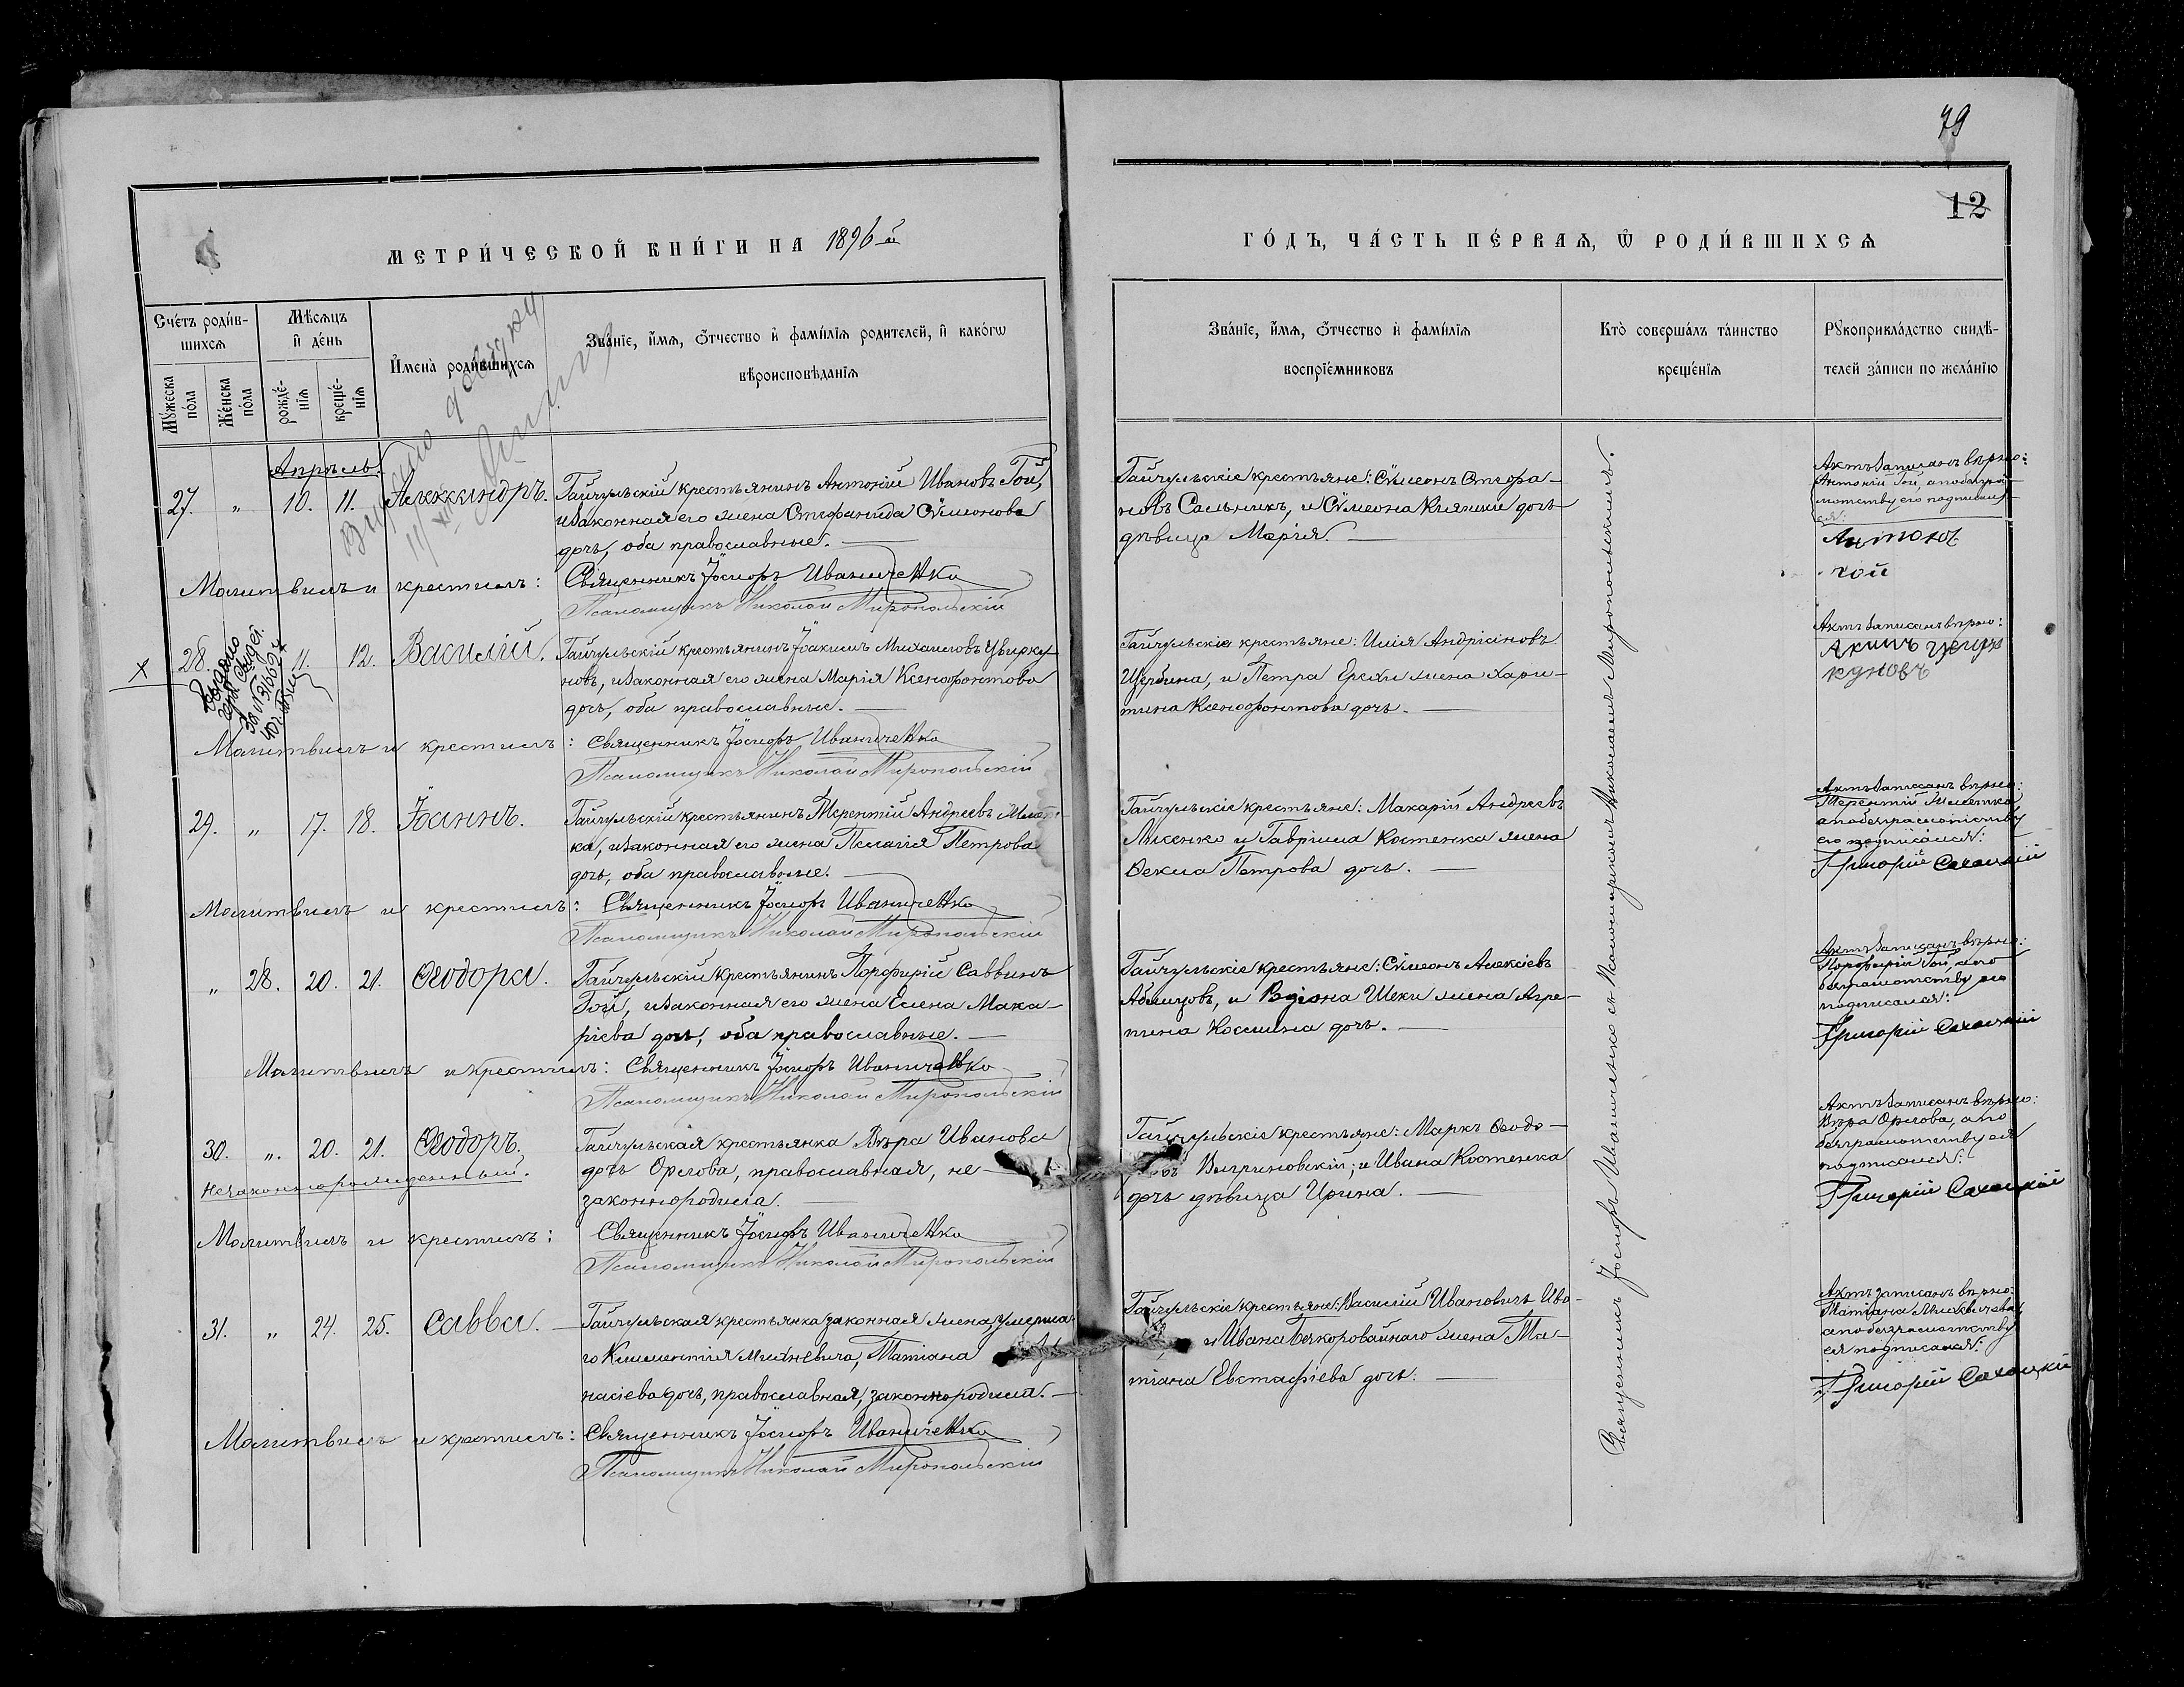 79
12
МЕТРИ́ЧЕСКОЙ КНИ́ГИ НА 1896 й
ГО́ДЪ, ЧА́СТЬ ПЕ́РВАѦ, Ѿ РОДИ́ВШИХСѦ
Сче́тъ роди́в-
шихсѧ
Мѣ́сѧцъ
и҆ де́нь
И҆мена̀ роди́вшихсѧ
Зва́нїе, и҆́мѧ, ѻ҆́тчество и҆ фамі́лїѧ роди́телей, и҆ како́гѡ
вѣроисповѣ́данїѧ
Мꙋ́жеска
по́ла
Же́нска
по́ла
рожде́-
нїѧ
креще́-
нїѧ
Зва́нїе, и҆́мѧ, ѻ҆́тчество и҆ фамі́лїѧ
воспрїе́мниковъ
Кто̀ соверша́лъ та́инство
креще́нїѧ
Рꙋкоприкла́дство свидѣ́-
телей за́писи по жела́нїю
Апрѣль.
27. " 10. 11. Александръ.
Гайчульскій крестьянинъ Антоній Ивановъ Гой,
и законная его жена Стефанида Сѵмеонова
дочь, оба православные.
Гайчульскіе крестьяне: Сѵмеонъ Стефа-
новъ Сальникъ, и Сѵмеона Княжки дочь
дѣвица Марія.
Актъ записанъ вѣрно:
Антоній Гой, а по безгра-
мотству его подписал-
ся:
Антонъ
Гой
Молитвилъ и крестилъ: Священникъ Іосифъ Иваниченко
Псаломщикъ Николай Миропольскій
28. 11. 12. Василій.
Выдано
Гайчульскій крестьянинъ Іоакимъ Михаиловъ Цвирку
новъ, и законная его жена Марія Ксенофонтова
дочь, оба православные.
Гайчульскіе крестьяне: Илія Андріановъ
Щербина, и Петра Ерехи жена Хари-
тина Ксенофонтова дочь.
Актъ записанъ вѣрно:
Акимъ Цвир
куновъ
Молитвилъ и крестилъ: Священникъ Іосифъ Иваниченко
Псаломщикъ Николай Миропольскій
29. " 17. 18. Іоаннъ.
Гайчульскій крестьянинъ Терентій Андреевъ
ка, и законная его жена Пелагія Петрова
дочь, оба православные.
Гайчульскіе крестьяне: Макарій Андреевъ
Лисенко и Гавріила Костенка жена
Ѳекла Петрова дочь.
Актъ записанъ вѣрно:
Терентій
а по безграмотству
его подписался:
Григорій
Молитвилъ и крестилъ: Священникъ Іосифъ Иваниченко
Псаломщикъ Николай Миропольскій
" 28. 20. 21. Ѳеодора.
Гайчульскій крестьянинъ Порфирій Саввинъ
Гой, и законная его жена Елена Мака-
ріева дочь, оба православные.
Гайчульскіе крестьяне: Сѵмеонъ Алексіевъ
и Родіона Шеки жена Агре-
пина Космина дочь.
Актъ записанъ вѣрно:
Порфирій Гой, а по
безграмотству его
подписался:
Григорій
Молитвилъ и крестилъ: Священникъ Іосифъ Иваниченко
Псаломщикъ Николай Миропольскій
30. ". 20. 21. Ѳеодоръ.
незаконнорожденный.
Гайчульская крестьянка Вѣра Иванова
дочь Орлова, православная, не-
законнородила.
Гайчульскіе крестьяне: Маркъ Ѳеодо-
ровъ Вигриновскій; и Ивана Костенка
дочь дѣвица Ирина.
Актъ записанъ вѣрно:
Вѣра Орлова, а по
безграмотству ея
подписался:
Григорій
Молитвилъ и крестилъ: Священникъ Іосифъ Иваниченко
Псаломщикъ Николай Миропольскій
31. " 24. 25. Савва.
Гайчульская крестьянка законная жена умерша-
го Климентія Михневича, Татіана
насіева дочь, православная, законнородила.
Гайчульскіе крестьяне: Василій Ивановичъ Ива-
и Ивана Безкоровайнаго жена Та-
тіана Евстафіева дочь.
Актъ записанъ вѣрно:
Татіана Михневичева,
а по безграмотству
ея подписался:
Григорій
Молитвилъ и крестилъ: Священникъ Іосифъ Иваниченко
Псаломщикъ Николай Миропольскій
Священникъ Іосифъ Иваниченко съ псаломщикомъ Николаемъ Миропольскимъ.